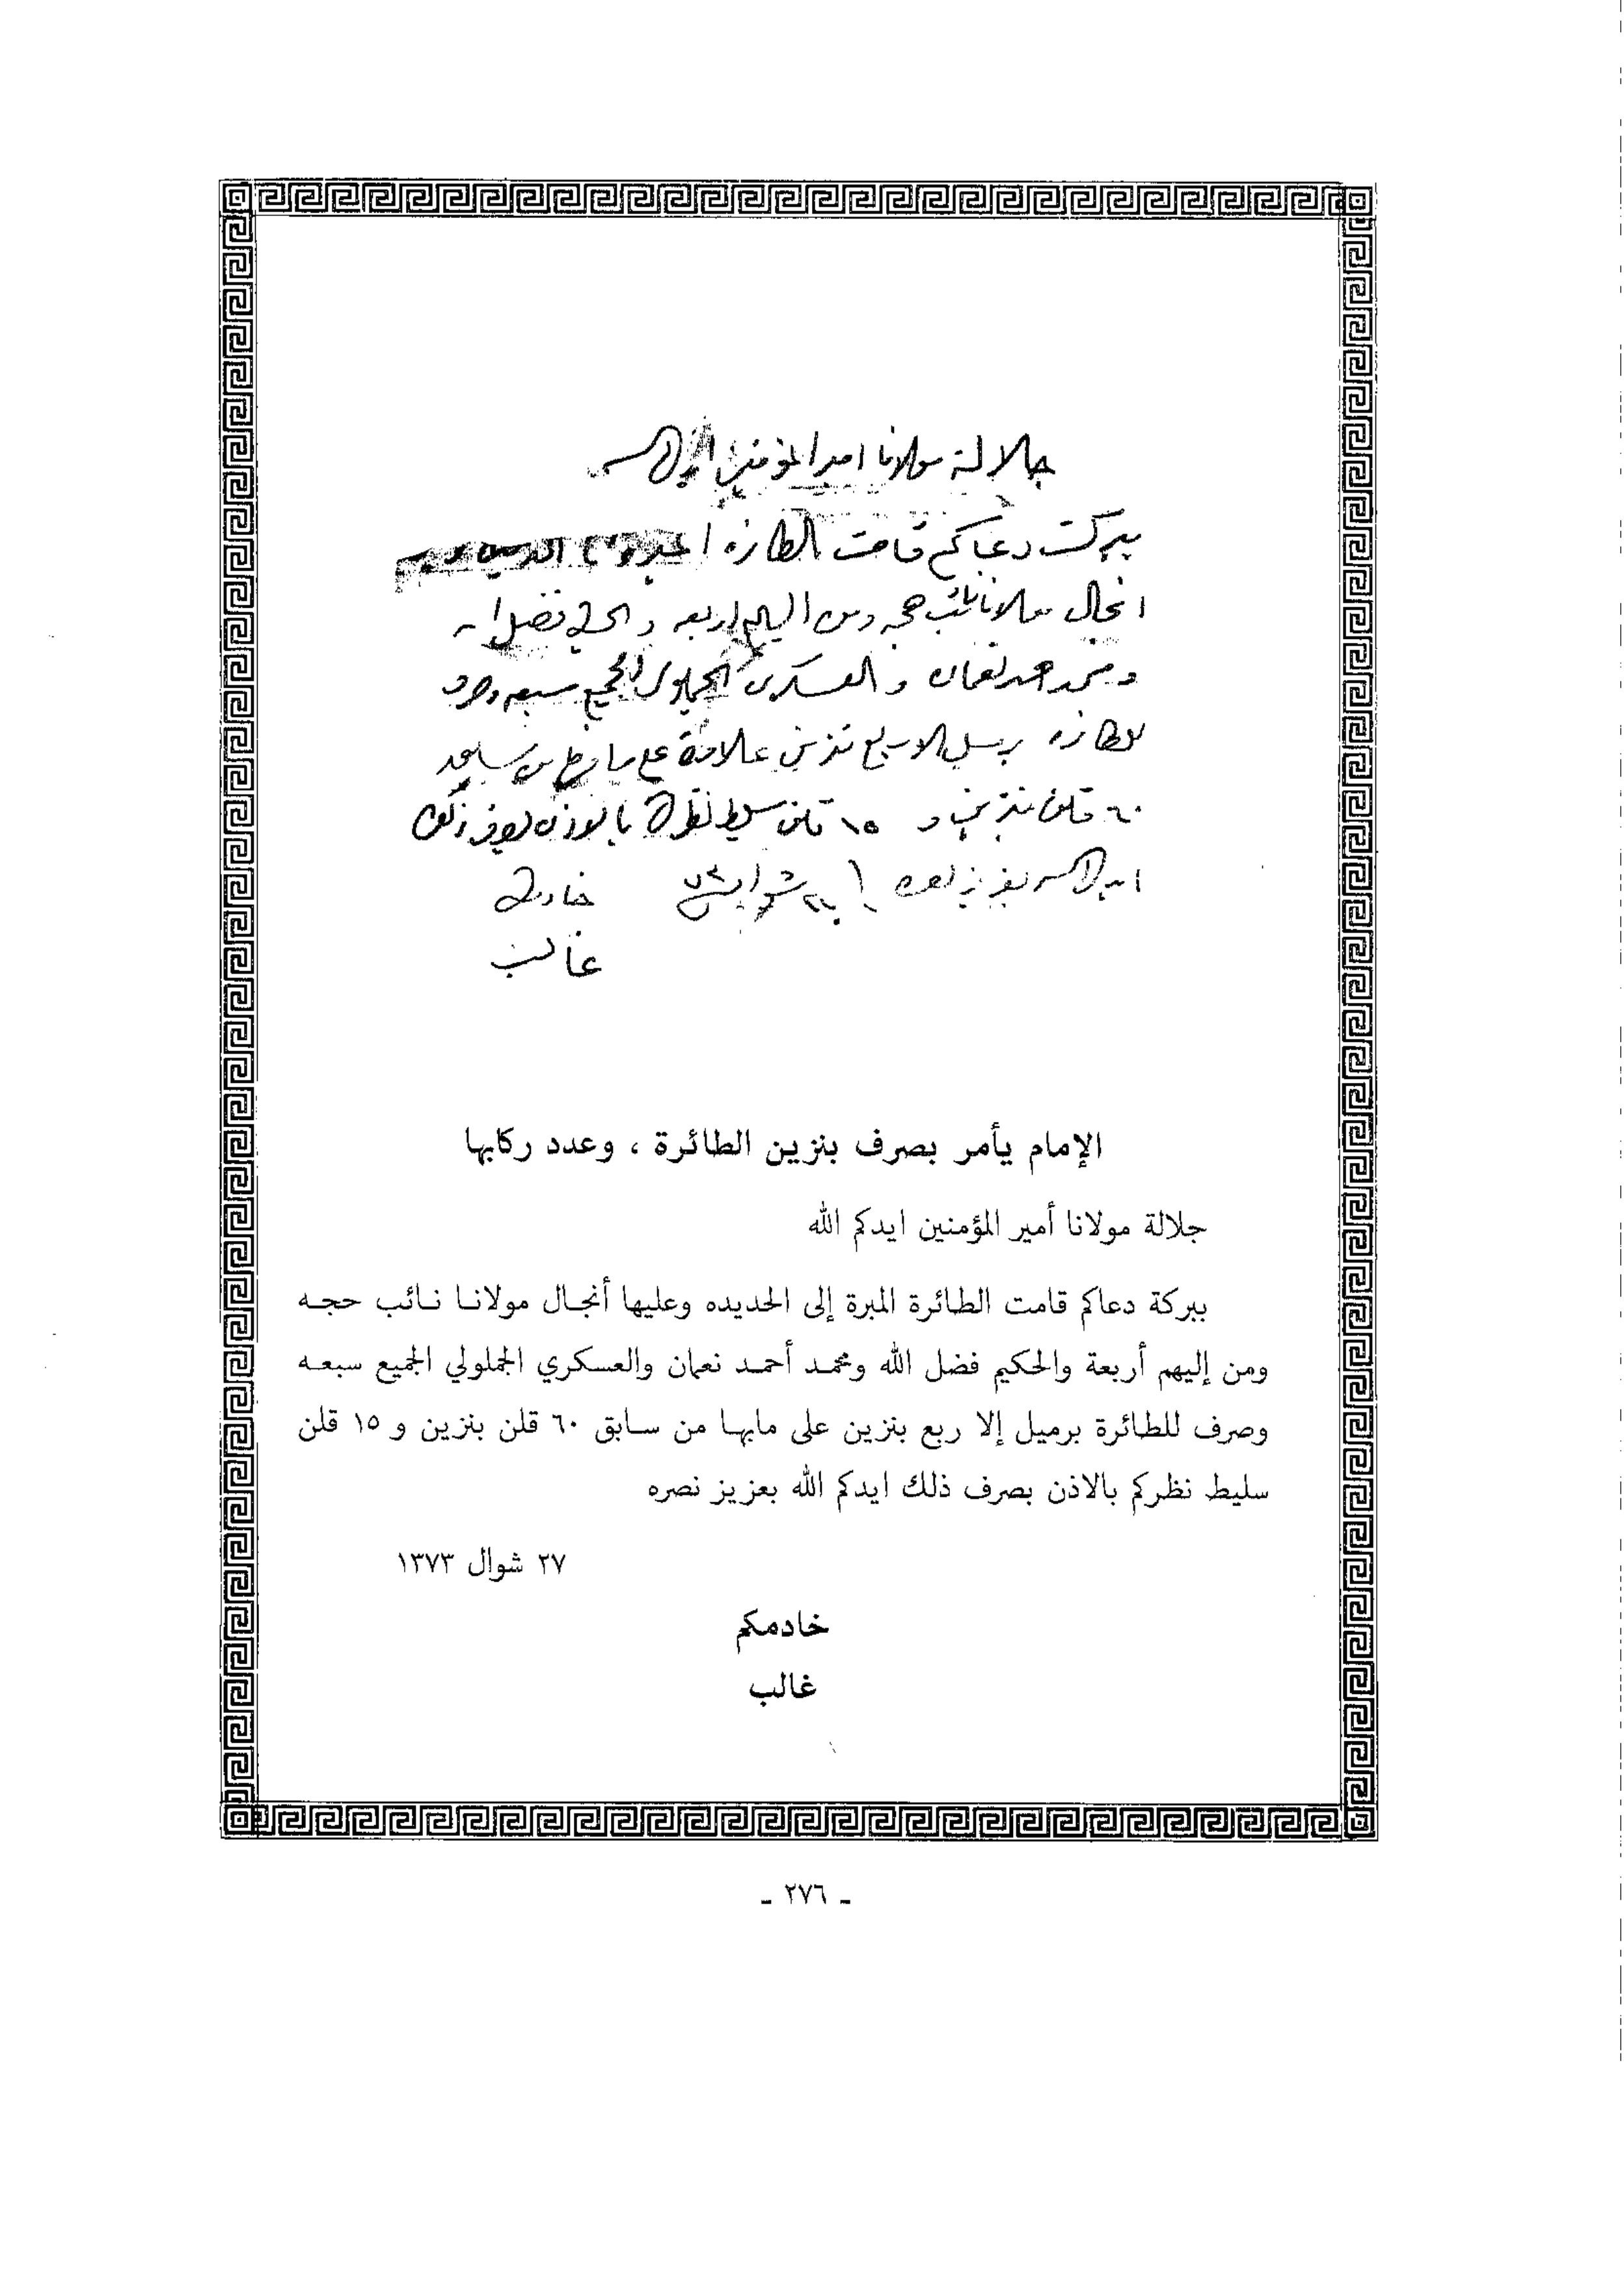 جلالة مولانا امير المؤمنين ايدكم الله
ببركت دعاكم قامت الطائره
انجال مولانا نائب حجه ومن اليهم اربعه والحكيم فضل الله
ومحمد احمد نعمان والعسكري الجملولي الجميع سبعه وصرف
للطائره برميل الا ربع بنزين علاوة على ما بها من سابق
٦٠ قلن بنزين و ١٥ قلن سليط نظركم بالاذن بصرف ذلك
ايدكم الله بعزيز نصره ٢٧ شوال
خادمكم
غالب
الإمام يأمر بصرف بنزين الطائرة ، وعدد ركابها
جلالة مولانا أمير المؤمنين ايدكم الله
ببركة دعاكم قامت الطائرة المبرة إلى الحديده وعليها أنجال مولانا نائب حجه
ومن إليهم أربعة والحكيم فضل الله ومحمد أحمد نعمان والعسكري الجملولي الجميع سبعه
وصرف للطائرة برميل إلا ربع بنزين على مابها من سابق ٦٠ قلن بنزين و ١٥ قلن
سليط نظركم بالاذن بصرف ذلك ايدكم الله بعزيز نصره
٢٧ شوال ١٣٧٣
خادمكم
غالب
ـ ٢٧٦ ـ